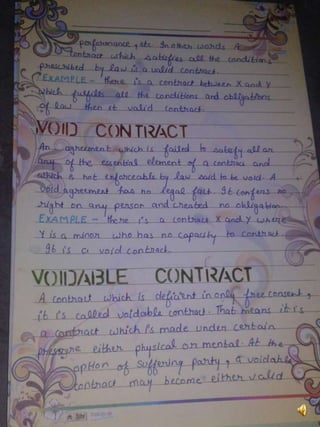 performance, etc. In other words A
contract which satisfies all the conditions
prescribed by law is a valid contract.
EXAMPLE - there is a contract between X and Y
which fulfills all the conditions and obligations
of law then it valid contract.
VOID CONTRACT
An agreement which is failed to satisfy all or
any of the essential element of a contract and
which is not enforceable by law said to be void. A
void agreement has no legal fact. It confers no
right on any person and created no obligation.
EXAMPLE - there is a contract X and Y where
Y is a minor who has no capacity to contract
It is a void contract.
VOIDABLE CONTRACT
A contract which is deficient in only free consent,
it is called voidable contract. That means it is
a contract which is made under certain
pressure either physical or mental. At the
option of suffering party, a voidable
contract may become either valid